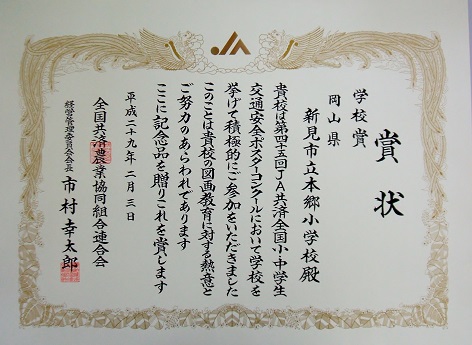 JA
賞状
学校賞
岡山県
新見市立本郷小学校殿
貴校は第四十五回JA共済全国小中学生
交通安全ポスターコンクールにおいて学校を
挙げて積極的にご参加をいただきました
このことは貴校の図画教育に対する熱意と
ご努力のあらわれであります
ここに記念品を贈りこれを賞します
平成二十九年二月三日
全国共済農業協同組合連合会
経営管理委員会会長 市村幸太郎